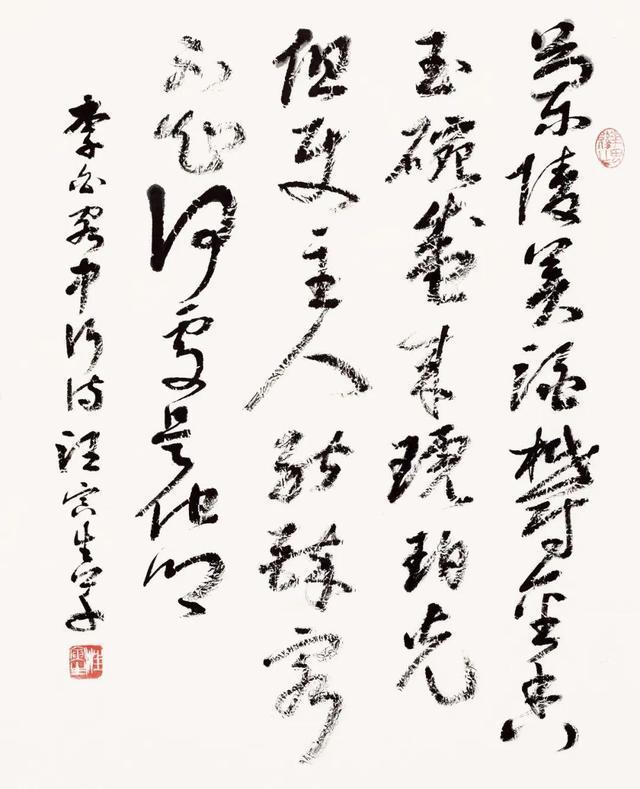 兰陵美酒鬱金香
玉碗盛来琥珀光
但使主人能醉客
不知何處是他鄉
李白客中行诗 汪寅生字